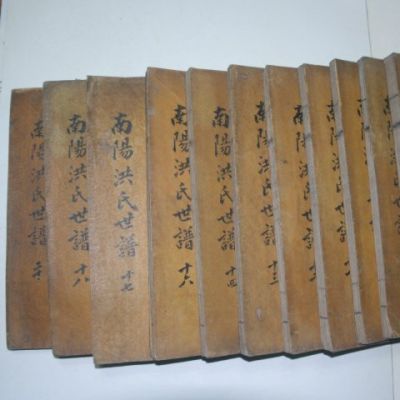 南陽洪氏世譜
南陽洪氏世譜 十八
南陽洪氏世譜 十七
南陽洪氏世譜 十六
南陽洪氏世譜 十四
南陽洪氏世譜 十三
南陽洪氏世譜
南陽洪氏世譜
南陽洪氏世譜